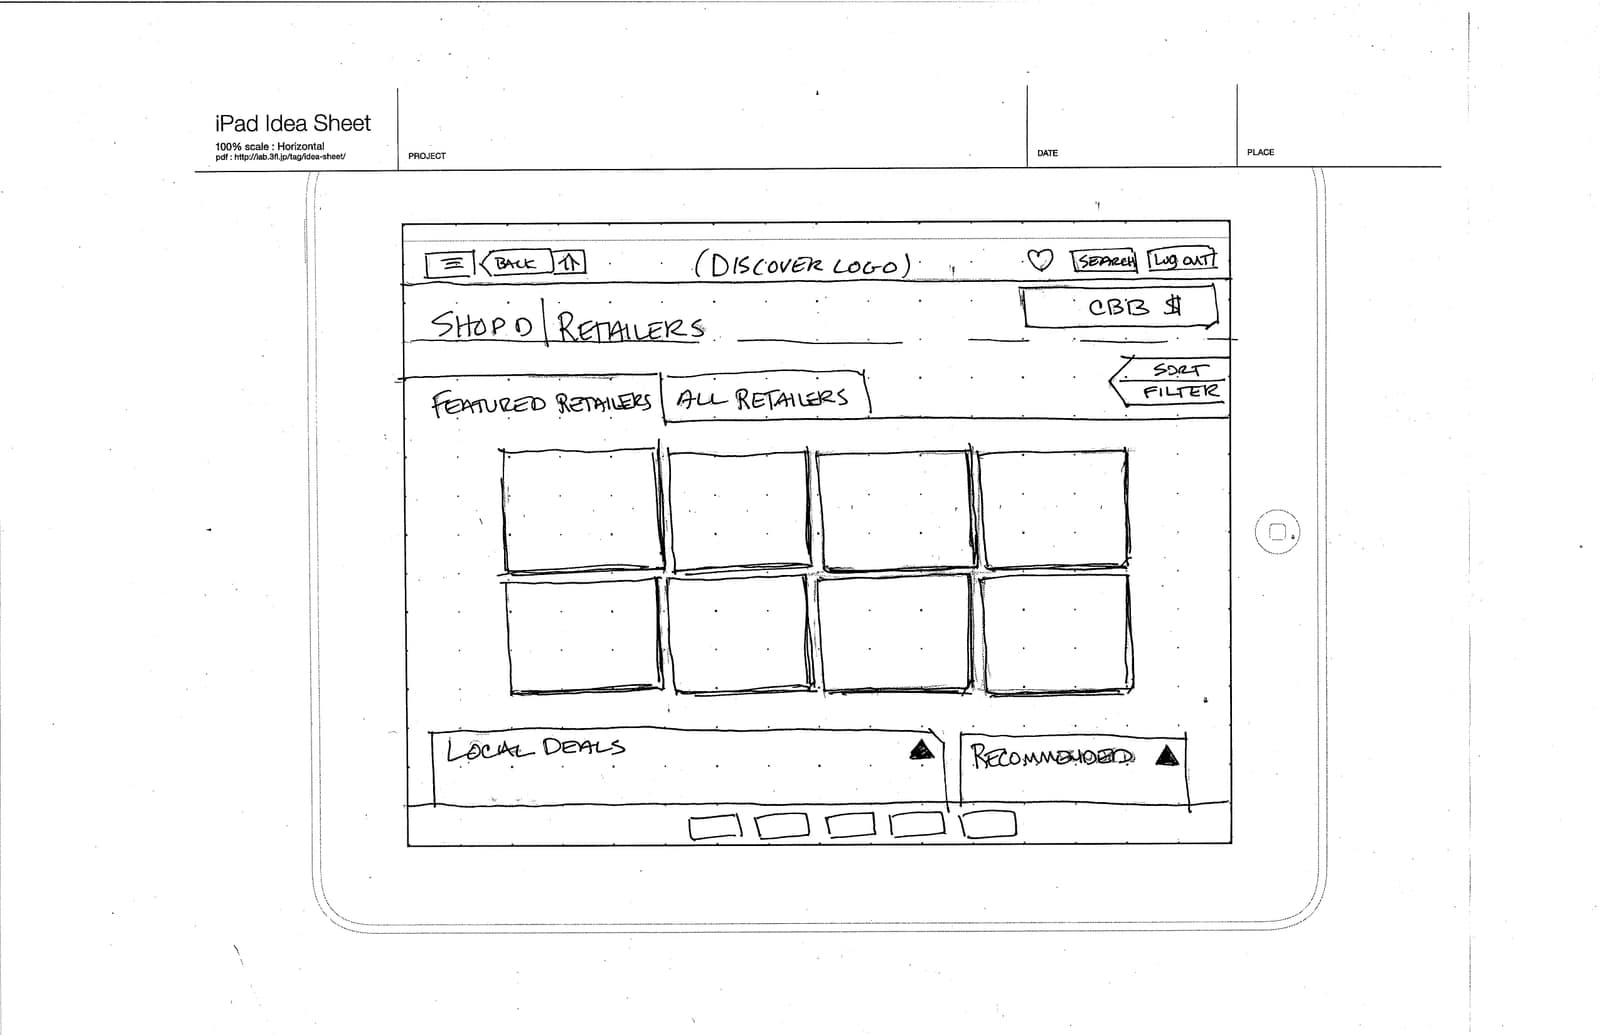 iPad Idea Sheet
100% scale : Horizontal
pdf : http://lab.3fl.jp/tag/idea-sheet/
PROJECT
DATE
PLACE
BACK
(DISCOVER LOGO)
SEARCH
LOG OUT
SHOP D | RETAILERS
CBB $
SORT
FILTER
FEATURED RETAILERS
ALL RETAILERS
LOCAL DEALS
RECOMMENDED